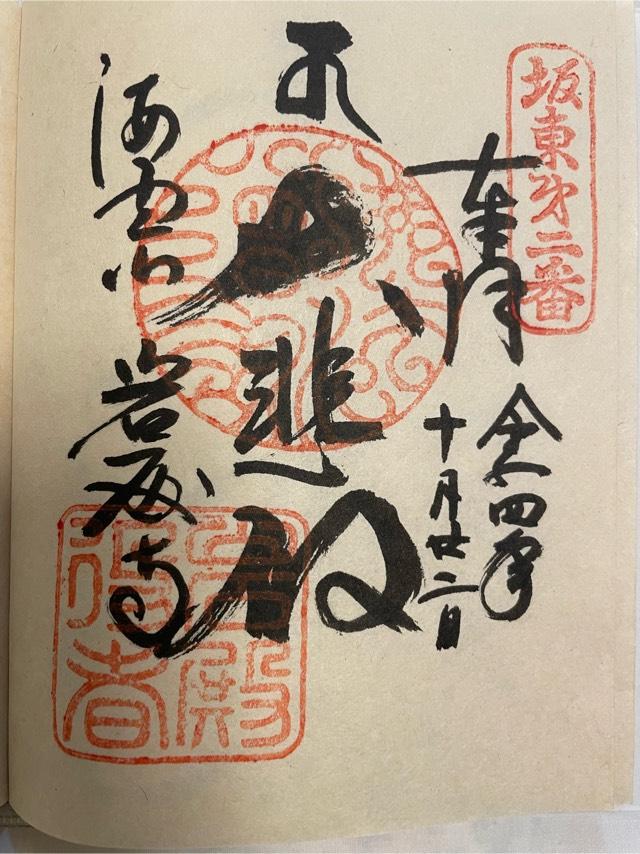 坂東第二番
奉拝
令和四年
十月廿二日
大悲殿
海雲山
岩殿寺